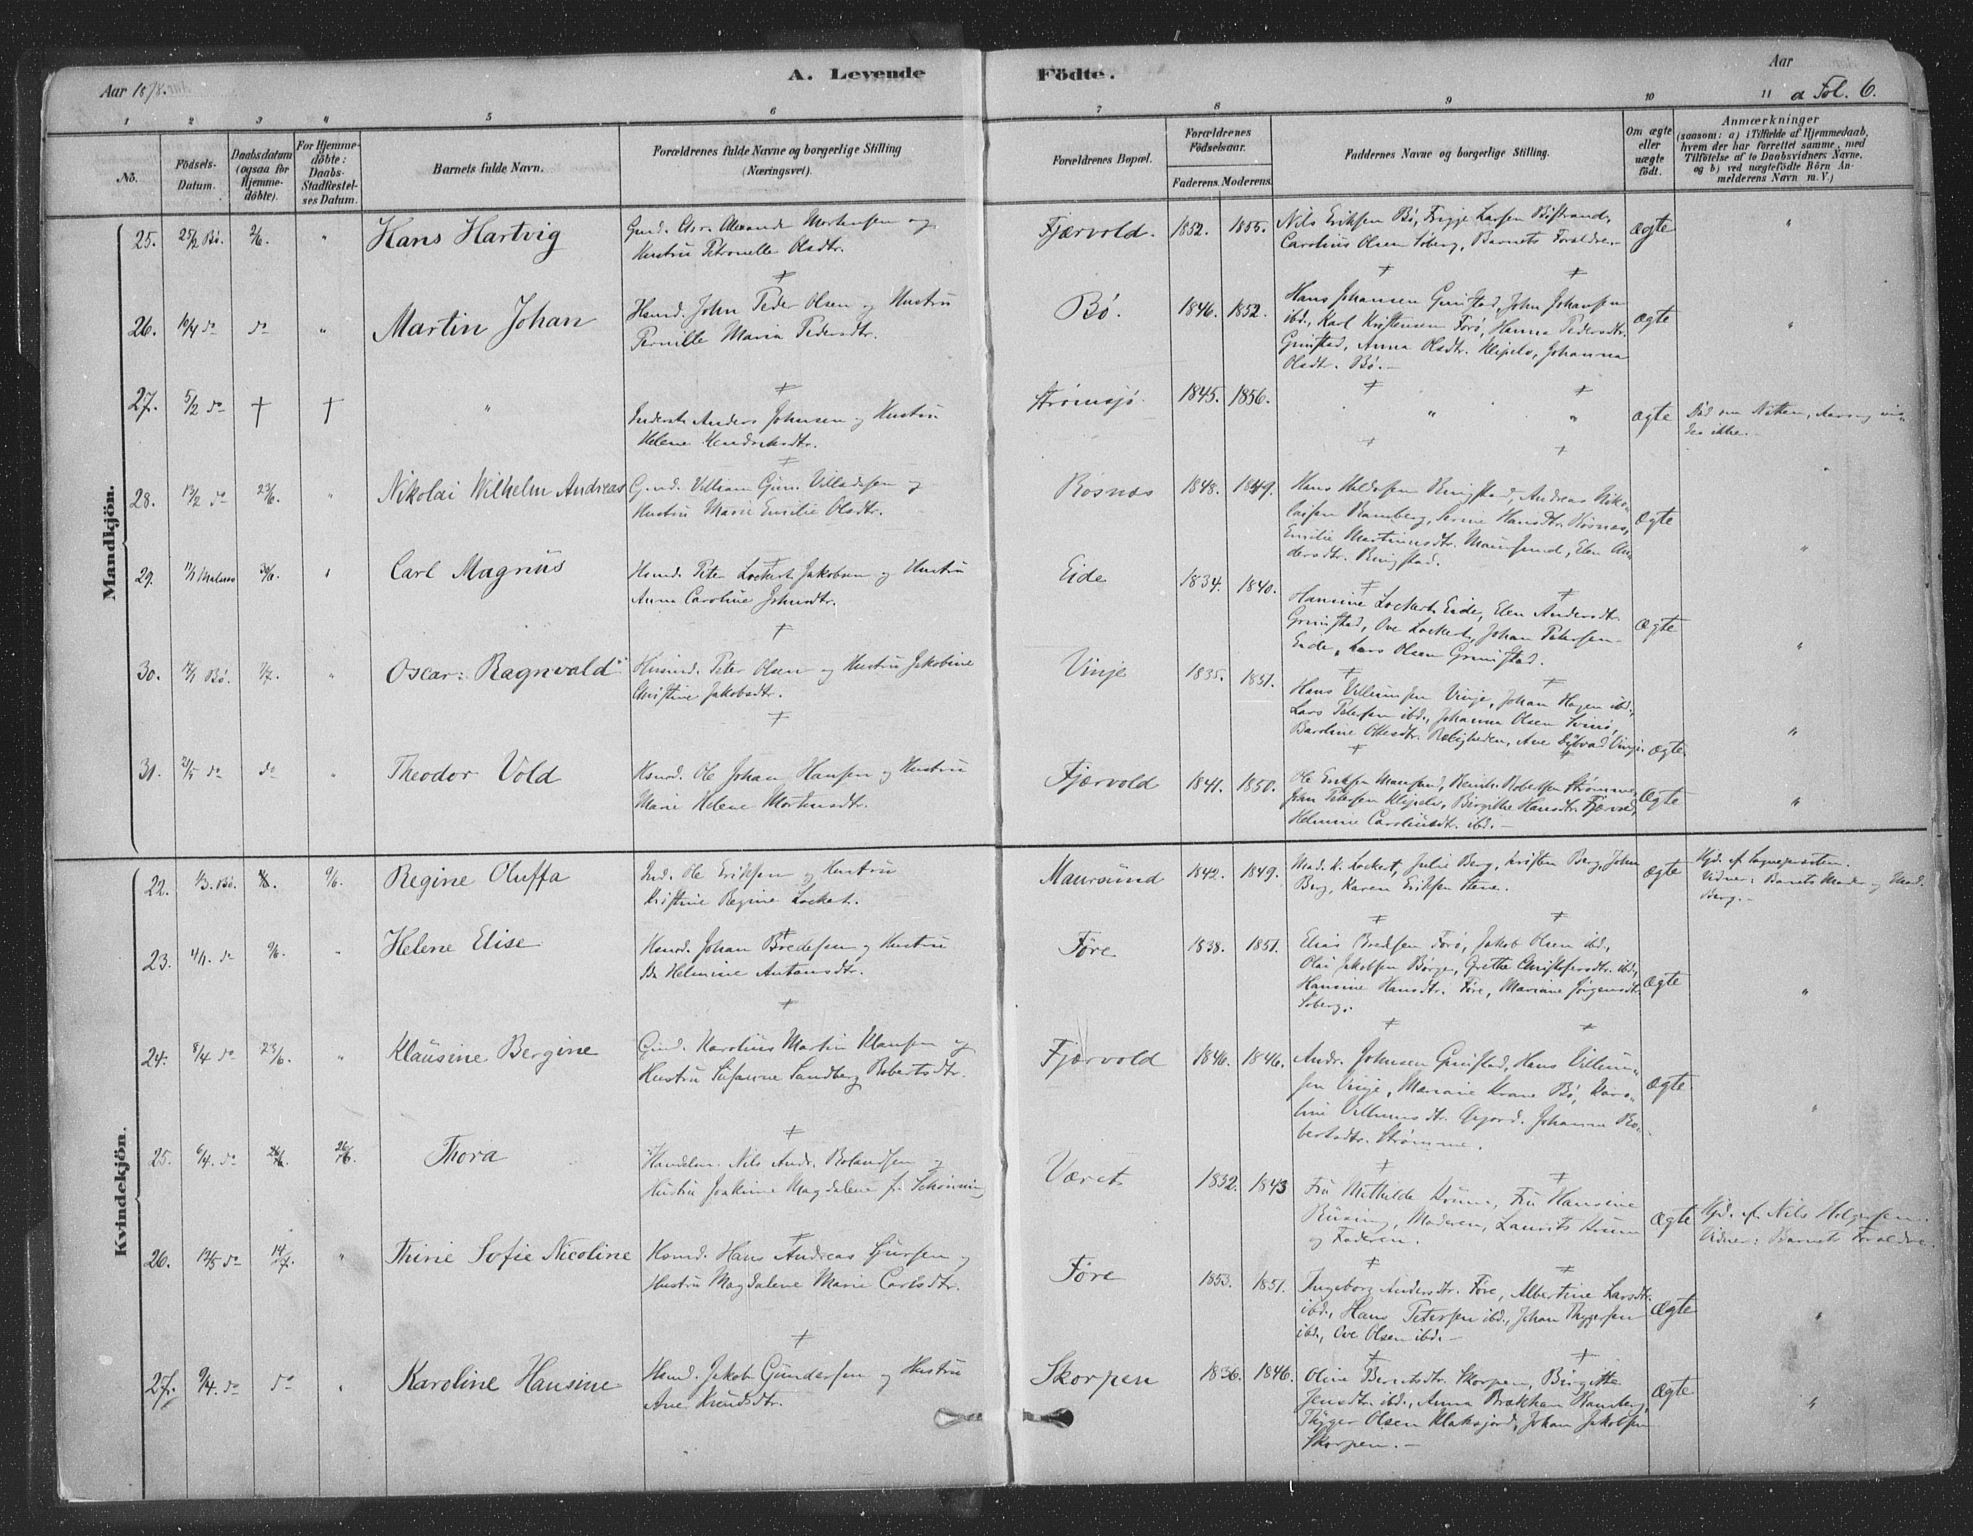 Aar 1878.
A. Levende Födte.
Aar
a Fol. 6.
1 2 3 4 5 6 7 8 9 10 11
No.
Födsels-Datum.
Daabsdatum (ogsaa for Hjemmedöbte).
For Hjemmedöbte: Daabs-Stadfæstelses Datum.
Barnets fulde Navn.
Forældrenes fulde Navne og borgerlige Stilling (Næringsvei).
Forældrenes Bopæl.
Forældrenes Födselsaar.
Faderens. Moderens.
Faddernes Navne og borgerlige Stilling.
Om ægte eller uægte födt.
Anmærkninger
(saasom: a) i Tilfælde af Hjemmedaab, hvem der har forrettet samme, med Tilföielse af to Daabsvidners Navne, og b) ved uægtefödte Börn Anmelderens Navn m. V.)
Mandkjön.
25. 25/2 Bø. 2/6. " Hans Hartvig
Hustru Petronelle Olsdtr.
Fjærvold. 1852. 1855.
Nils Eriksen Bø, Larsen Bøstrand,
Carolius Olsen Søberg, Barnets Forældre.
Ægte "
26. 10/4 do do " Martin Johan
Husmd. John Peder Olsen og Hustru
Pernille Maria Pedersdtr.
Bø. 1846. 1852.
Hans Johansen Grimstad, John Johansen
ibd., Karl Kristensen Førø, Hanna Pedersdtr.
Grimstad, Anna Olsdtr. Klipels, Johanna
Olsdtr. Bø.
Ægte "
27. 5/2 do † † "
Anders Johnsen og Hustru
Helene
Strømsjø. 1845. 1856.
" "
Ægte
Død om Natten, Aarsag vi-
des ikke.
28. 13/2 do 23/6. " Nikolai Wilhelm Andreas
Hustru Marie Emilie Olsdtr.
Røsnæs 1848. 1849.
Ringstad, Andreas Niko-
laisen Ramberg,
Emilie Martinusdtr. Maursund, Elen An-
dersdtr. Ringstad.
Ægte "
29. Carl Magnus
Husmd. Peter Lockert Jakobsen og Hustru
Anna Caroline Johnsdtr.
Eide 1834. 1840.
Hansine Lockert Eide, Elen Andersdtr.
Grimstad, Ove Lockert, Johan Petersen
Eide, Lars Olsen Grimstad.
Ægte "
30. Bø. 7/7. " Oscar Ragnvald
Husmd. Peter Olsen og Hustru Jakobine
Christine Jakobsdtr.
Vinje 1835. 1837.
Hans Villumsen Vinje, Johan Hagen ibd.,
Lars Petersen ibd., Johanna Olsen Svinø,
Bardine Ottesdtr. Roligheden, Ane Vinje.
Ægte "
31. 21/5 do do " Theodor Vold
Husmd. Ole Johan Hansen og Hustru
Marie Helene Mortensdtr.
Fjærvold 1841. 1850.
Ole Eriksen Maursund, Robertsen Strømme,
John Petersen Klipels, Birgitte Hansdtr. Fjærvold,
Helmine Caroliusdtr. ibd.
Ægte "
Kvindekjön.
22. 1/3. Bø. 9/6. Regine Oluffa
Ole Eriksen og Hustru
Kristine Regine Lockert.
Maursund 1842. 1849.
Mad. K. Lockert, Julie Berg, Kristen Berg, John
Berg, Karen Eriksen Stene.
Ægte
Hjd. af Sognepræsten.
Vidner: Barnets Moder og Mad.
Berg.
23. 4/4. do 9/6. " Helene Elise
Husmd. Johan Bredesen og Hustru
Helmine Antonsdtr.
Føre 1838. 1851.
Elias Bredesen Førø, Jakob Olsen ibd.,
Olai Jakobsen Børge, Grethe Christofersdtr. ibd.,
Hansine Hansdtr. Føre, Mariane Jørgensdtr.
Søberg.
Ægte "
24. 8/4 do 23/6. " Klausine Bergine
Karolius Martin Klausen og
Hustru Susanne Sandberg Robertsdtr.
Fjærvold 1846. 1846.
Andr. Johnsen Grimstad, Hans Villum-
sen Vinje, Mariane Krane Bø, Karo-
line Villumsdtr. Johanna Ro-
bertsdtr. Strømme.
Ægte "
25. 6/4. do 26/6. Thora
Handelsm. Nils Andr. Rolandsen og
Hustru Joakime Magdalene f. Schønning
Været 1852. 1843
Fru Mathilde Fru Hansine
Rüsing, Moderen, Laurits
og Faderen.
Ægte
Hjd. af Nils Helgesen.
Vidner: Barnets Forældre.
26. 13/5 do 14/7. " Thine Sofie Nicoline
Husmd. Hans Andreas Sjursen og
Hustru Magdalene Marie Carlsdtr.
Føre 1853. 1851.
Ingeborg Andersdtr. Føre, Albertine Larsdtr.
ibd., Hans Petersen ibd., Johan Thygersen
ibd., Ove Olsen ibd.
Ægte "
27. 9/4. do do " Karoline Hansine
Husmd. Jakob Gundersen og Hustru
Ane Knudsdtr.
Skorpen 1836. 1846.
Oline Berntsdtr. Skorpen, Birgitte
Jensdtr. ibd., Anna Brækhan Ramberg,
Thyger Olsen Klaksjord, Johan Jakobsen
Skorpen.
Ægte "